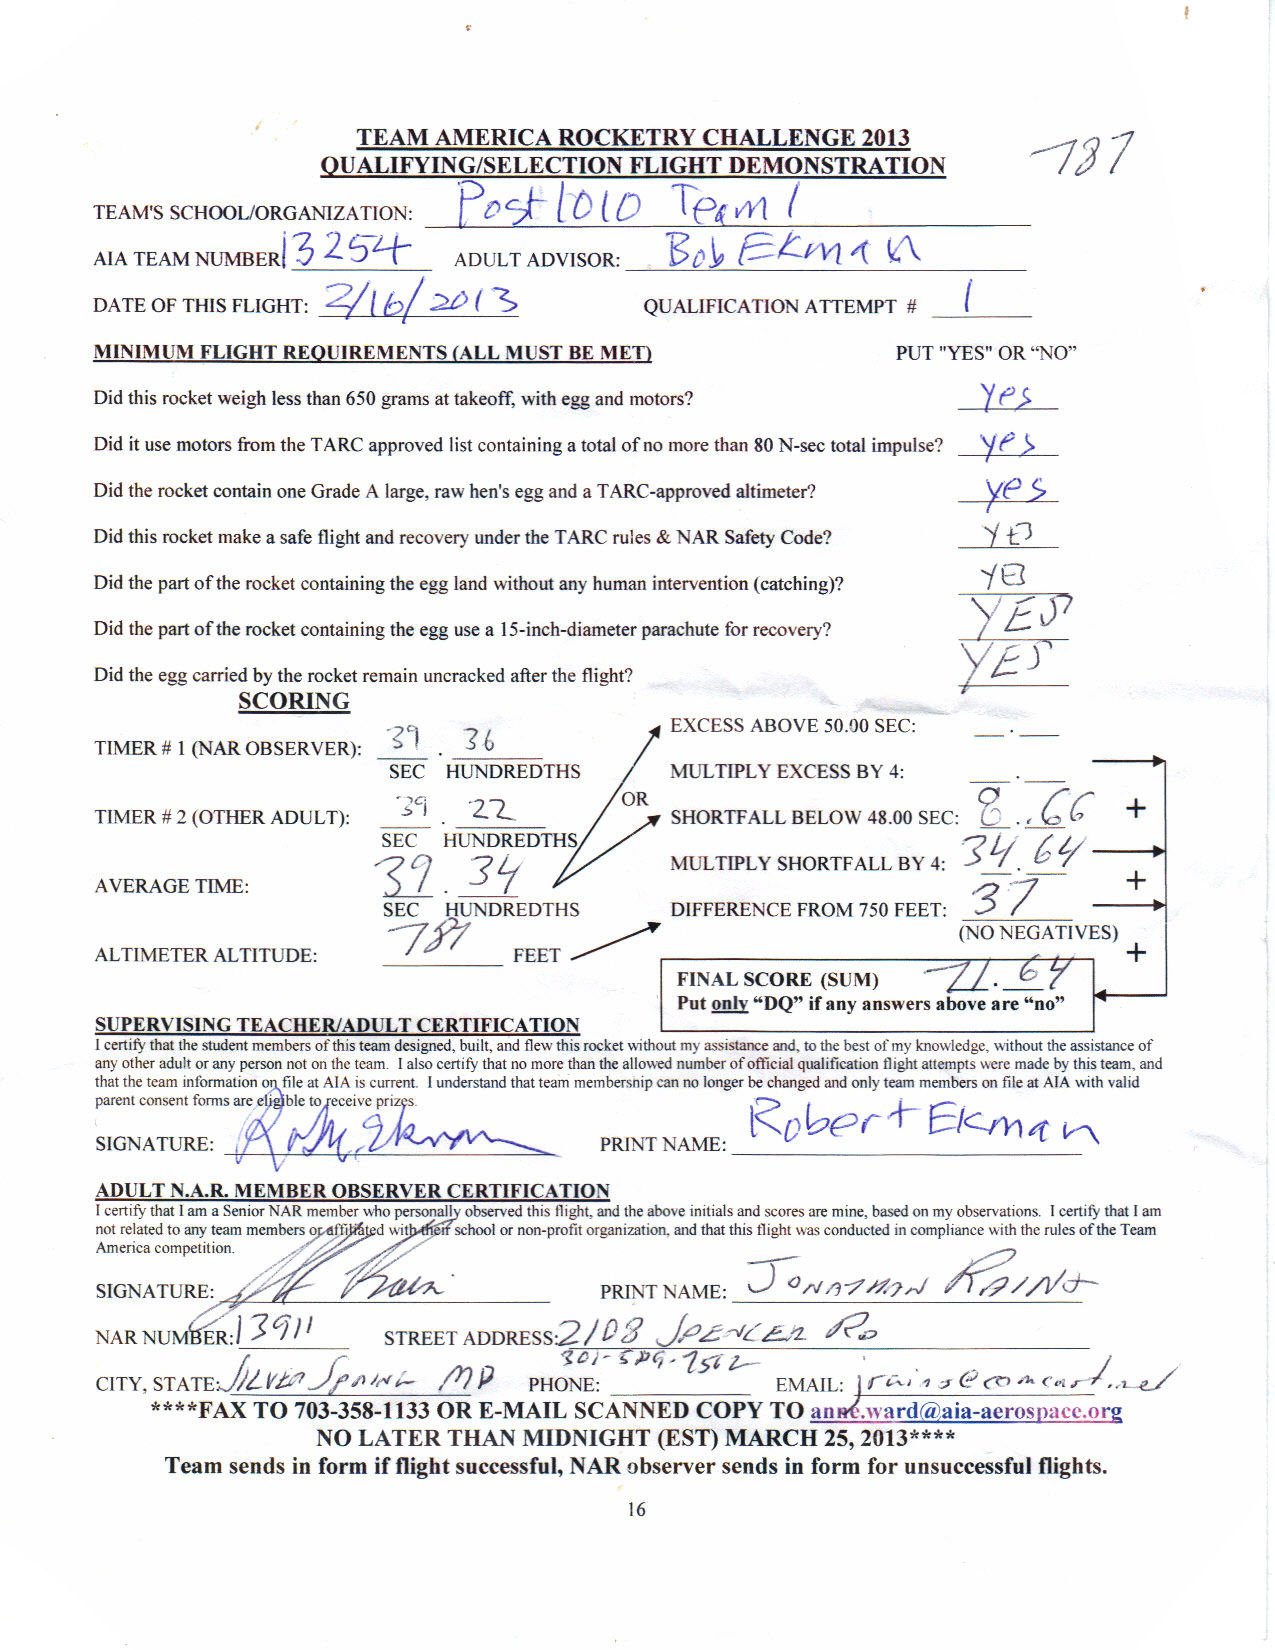 TEAM AMERICA ROCKETRY CHALLENGE 2013
QUALIFYING/SELECTION FLIGHT DEMONSTRATION 787
TEAM'S SCHOOL/ORGANIZATION: Post 1010 Team 1
AIA TEAM NUMBER 13254 ADULT ADVISOR: Bob Ekman
DATE OF THIS FLIGHT: 2/16/2013 QUALIFICATION ATTEMPT # 1
MINIMUM FLIGHT REQUIREMENTS (ALL MUST BE MET) PUT "YES" OR “NO”
Did this rocket weigh less than 650 grams at takeoff, with egg and motors? Yes
Did it use motors from the TARC approved list containing a total of no more than 80 N-sec total impulse? yes
Did the rocket contain one Grade A large, raw hen's egg and a TARC-approved altimeter? yes
Did this rocket make a safe flight and recovery under the TARC rules & NAR Safety Code? YES
Did the part of the rocket containing the egg land without any human intervention (catching)? YES
Did the part of the rocket containing the egg use a 15-inch-diameter parachute for recovery? YES
Did the egg carried by the rocket remain uncracked after the flight? YES
SCORING
EXCESS ABOVE 50.00 SEC: __.__
TIMER # 1 (NAR OBSERVER): 39 . 36
SEC HUNDREDTHS MULTIPLY EXCESS BY 4: __.__
OR
TIMER # 2 (OTHER ADULT): 39 . 22 SHORTFALL BELOW 48.00 SEC: 8.66 +
SEC HUNDREDTHS
MULTIPLY SHORTFALL BY 4: 34.64
AVERAGE TIME: 39 . 34 +
SEC HUNDREDTHS DIFFERENCE FROM 750 FEET: 37
(NO NEGATIVES)
ALTIMETER ALTITUDE: 787 FEET +
FINAL SCORE (SUM) 71.64
Put only “DQ” if any answers above are “no”
SUPERVISING TEACHER/ADULT CERTIFICATION
I certify that the student members of this team designed, built, and flew this rocket without my assistance and, to the best of my knowledge, without the assistance of
any other adult or any person not on the team. I also certify that no more than the allowed number of official qualification flight attempts were made by this team, and
that the team information on file at AIA is current. I understand that team membership can no longer be changed and only team members on file at AIA with valid
parent consent forms are eligible to receive prizes.
SIGNATURE: PRINT NAME: Robert Ekman
ADULT N.A.R. MEMBER OBSERVER CERTIFICATION
I certify that I am a Senior NAR member who personally observed this flight, and the above initials and scores are mine, based on my observations. I certify that I am
not related to any team members or affiliated with their school or non-profit organization, and that this flight was conducted in compliance with the rules of the Team
America competition.
SIGNATURE: PRINT NAME: JONATHAN RAINS
NAR NUMBER: 13911 STREET ADDRESS: 2108 SPENCER RD
301-589-7562
CITY, STATE: SILVER SPRING MD PHONE: EMAIL: jrains@comcast.net
****FAX TO 703-358-1133 OR E-MAIL SCANNED COPY TO anne.ward@aia-aerospace.org
NO LATER THAN MIDNIGHT (EST) MARCH 25, 2013****
Team sends in form if flight successful, NAR observer sends in form for unsuccessful flights.
16